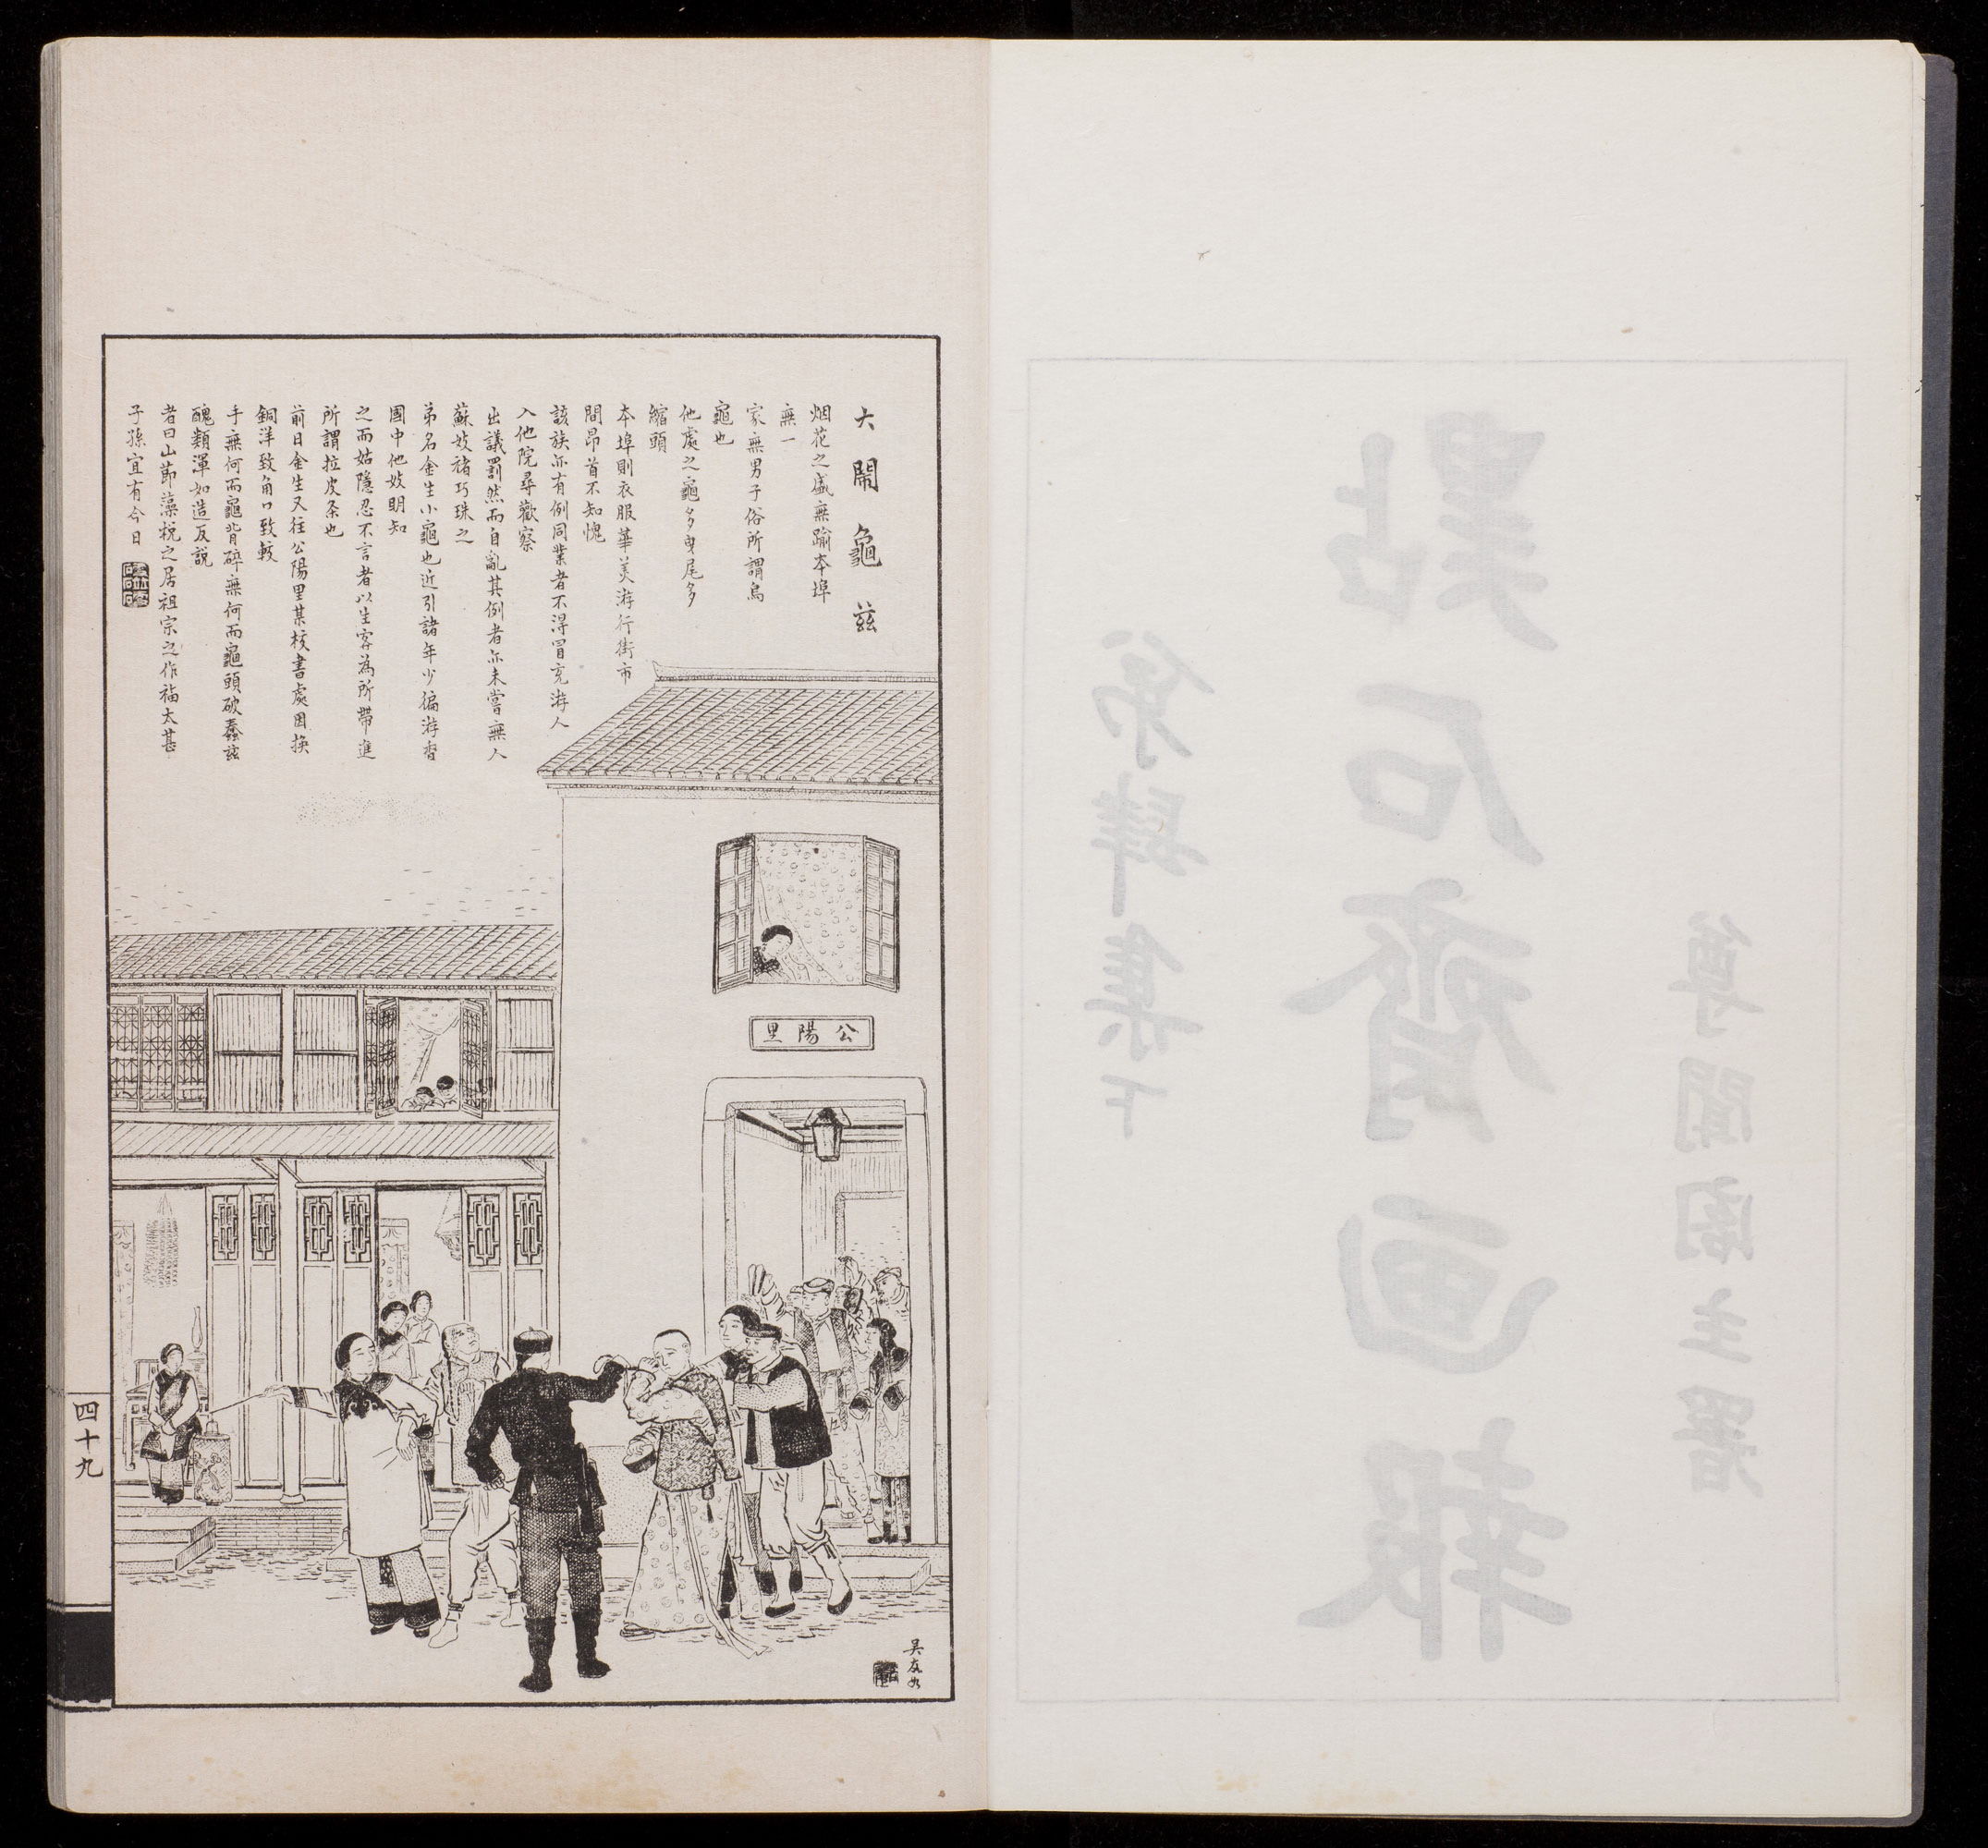 大鬧龜茲
烟花之盛無踰本埠
無一
家無男子俗所謂烏
龜也
他處之龜多曳尾多
縮頭
本埠則衣服華美游行街市
間昂首不知愧
該族亦有例同業者不得冒充游人
入他院尋歡察
出議罰然而自亂其例者亦未嘗無人
蘇妓褚巧珠之
弟名金生小龜也近引諸年少徧游香
國中他妓明知
之而姑隱忍不言者以生客為所帶進
所謂拉皮条也
前日金生又往公陽里某校書處因換
銅洋致角口致較
手無何而龜背碎無何而龜頭破蠢茲
醜類渾如造反説
者曰山節藻梲之居祖宗之作福太甚
子孫宜有今日
公陽里
吳友如
四十九
尊聞閣主署
點石齋画報
第肆集下